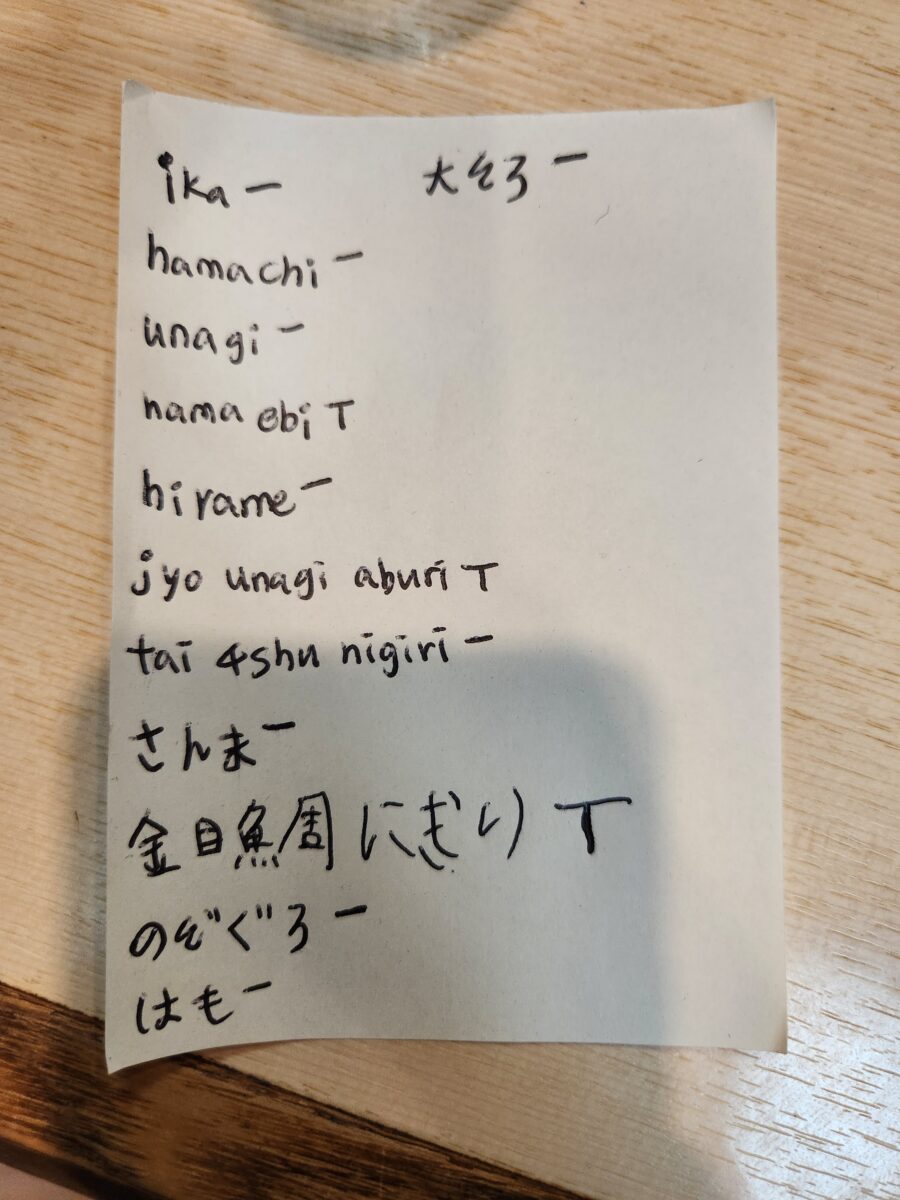 ika 一
大とろ 一
hamachi 一
unagi 一
nama ebi T
hirame 一
jyo unagi aburi T
tai 4shu nigiri 一
さんま 一
金目鯛 にぎり T
のどぐろ 一
はも 一